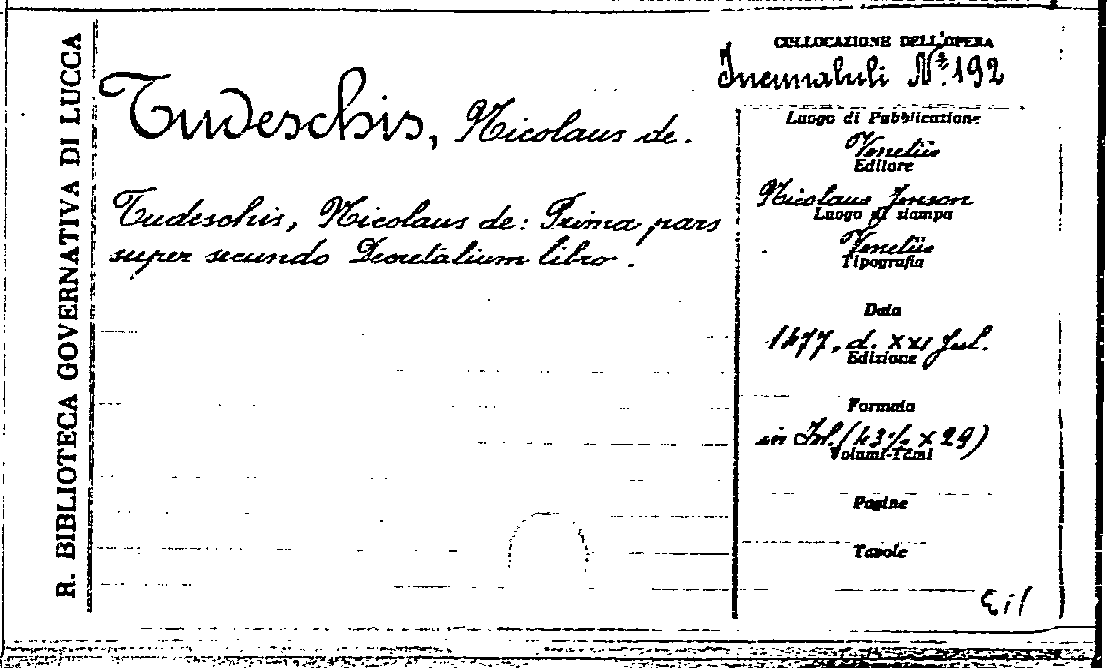 R. BIBLIOTECA GOVERNATIVA DI LUCCA
Tudeschis, Nicolaus de.
Tudeschis, Nicolaus de: Prima pars
super secundo Decretalium libro.
COLLOCAZIONE DELL'OPERA
Incunaluli Nº. 192
Luogo di Pubblicazione
Venetiis
Editore
Nicolaus Jenson
Luogo di stampa
Venetiis
Tipografia
Data
1477, d. XXI Jul.
Edizione
Formato
in fol. (43½ x 29)
Volumi-Tomi
Pagine
Tavole